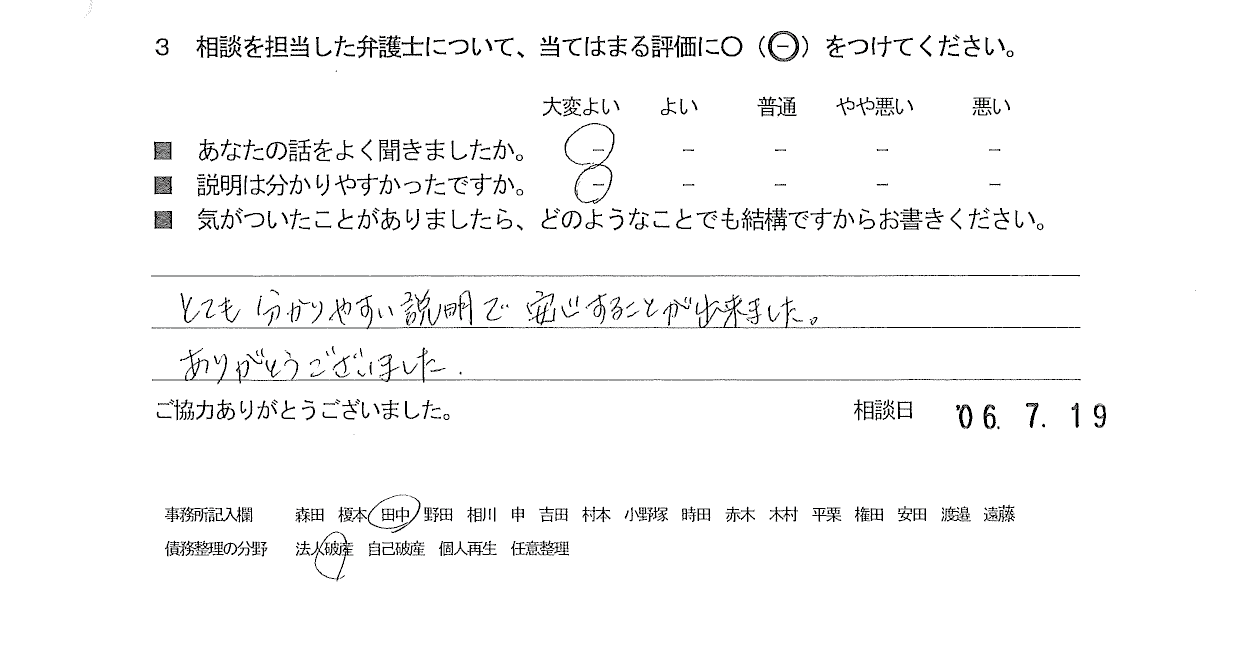 3 相談を担当した弁護士について、当てはまる評価に○（㊀）をつけてください。
大変よい よい 普通 やや悪い 悪い
■ あなたの話をよく聞きましたか。 － － － － －
■ 説明は分かりやすかったですか。 － － － － －
■ 気がついたことがありましたら、どのようなことでも結構ですからお書きください。
とても分かりやすい説明で安心することが出来ました。
ありがとうございました.
ご協力ありがとうございました。 相談日 '06. 7. 19
事務所記入欄 森田 榎本 田中 野田 相川 申 吉田 村本 小野塚 時田 赤木 木村 平栗 権田 安田 渡邉 遠藤
債務整理の分野 法人破産 自己破産 個人再生 任意整理